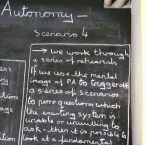 Autonomy -
Scenario 4
→ we work through
a series of rehearsals
If we use the mental
image of PA to trigger off
a series of scenarios
to pose questions which
the existing system is
unable or unwilling to
ask - then it is possible to
look at a fundamental